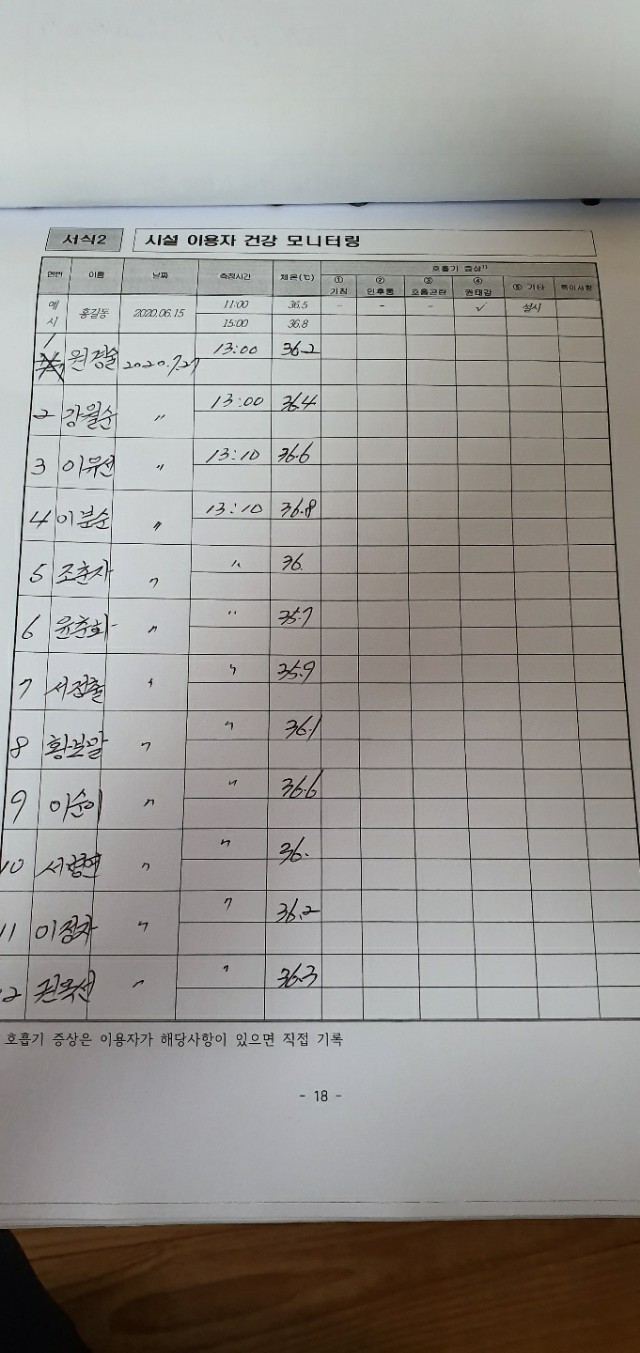 서식2 시설 이용자 건강 모니터링
연번 이름 날짜 측정시간 체온(℃) 호흡기 증상¹⁾
① 기침 ② 인후통 ③ 호흡곤란 ④ 권태감 ⑤ 기타 특이사항
예시 홍길동 2020.06.15 11:00 36.5 - - - ✓ 설사
15:00 36.8
1 원경술 2020.7.27 13:00 36.2
2 강월순 〃 13:00 36.4
3 이유선 〃 13:10 36.6
4 이분순 〃 13:10 36.8
5 조춘자 〃 〃 36
6 윤춘희 〃 〃 35.7
7 서점출 〃 〃 35.9
8 황보말 〃 〃 36.1
9 이순이 〃 〃 36.6
10 〃 〃 36.
11 이정자 〃 〃 36.2
12 권옥선 〃 〃 36.3
호흡기 증상은 이용자가 해당사항이 있으면 직접 기록
- 18 -